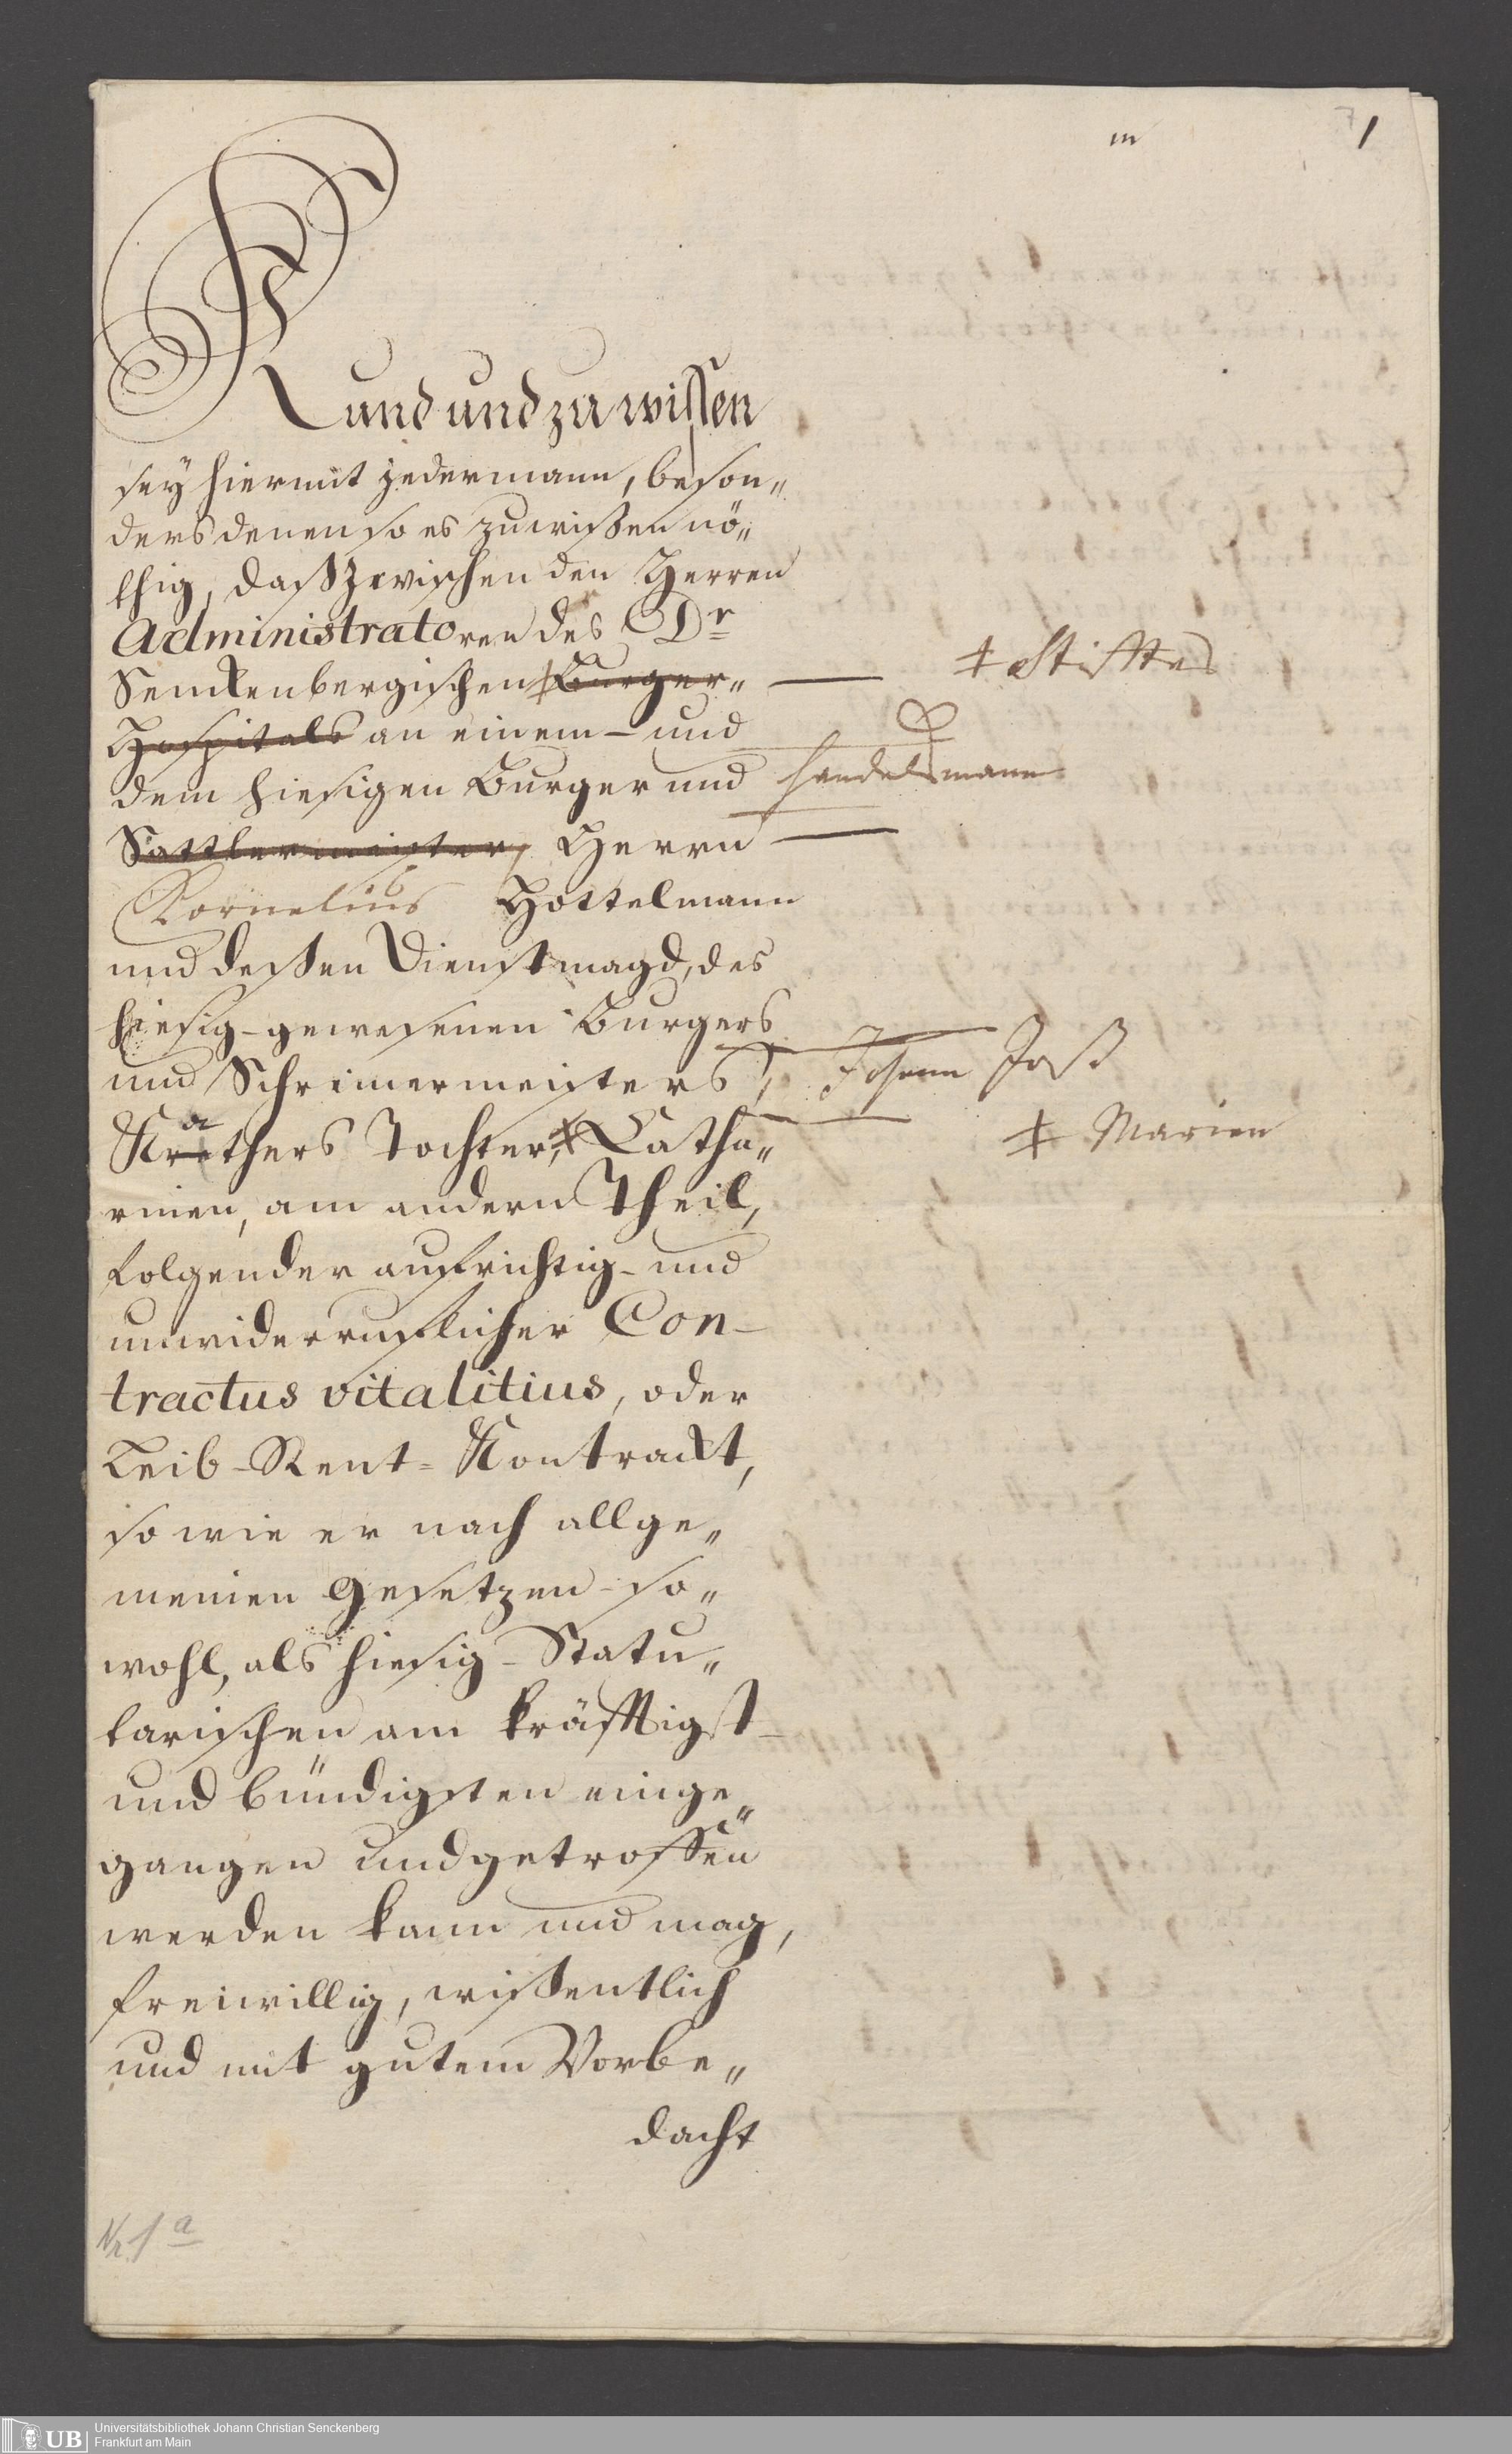 m
71
Kund und zu wissen
sey hiermit jedermann, beson„
ders denen so es zu wißen nö„
thig, daß zwischen den Herren
Administratoren des Dr
Senckenbergischen ‡ Burger„
‡ Stifftes
Hospitals an einem – und
dem hiesigen Burger und
Handelsmann
Sattlermeister, Herrn
Kornelius Hottelmann
und deßen Dienstmagd, des
hiesig-gewesenen Burgers
und Schreinermeisters,
Johann Joß
Krathers Tochter, ‡ Catha„
‡ Marien
rinen, am andern Theil,
folgender aufrichtig- und
unwiderruflicher Con-
tractus vitalitius, oder
Leib-Rent-Kontrackt,
so wie er nach allge„
meinen Gesetzen so„
wohl, als hiesig-Statu„
tarischen am kräfftigst-
und bündigsten einge„
gangen und getroffen
werden kann und mag,
freiwillig, wißentlich
und mit gutem Vorbe„
dacht
Nr. 1 a
UB
Universitätsbibliothek Johann Christian Senckenberg
Frankfurt am Main